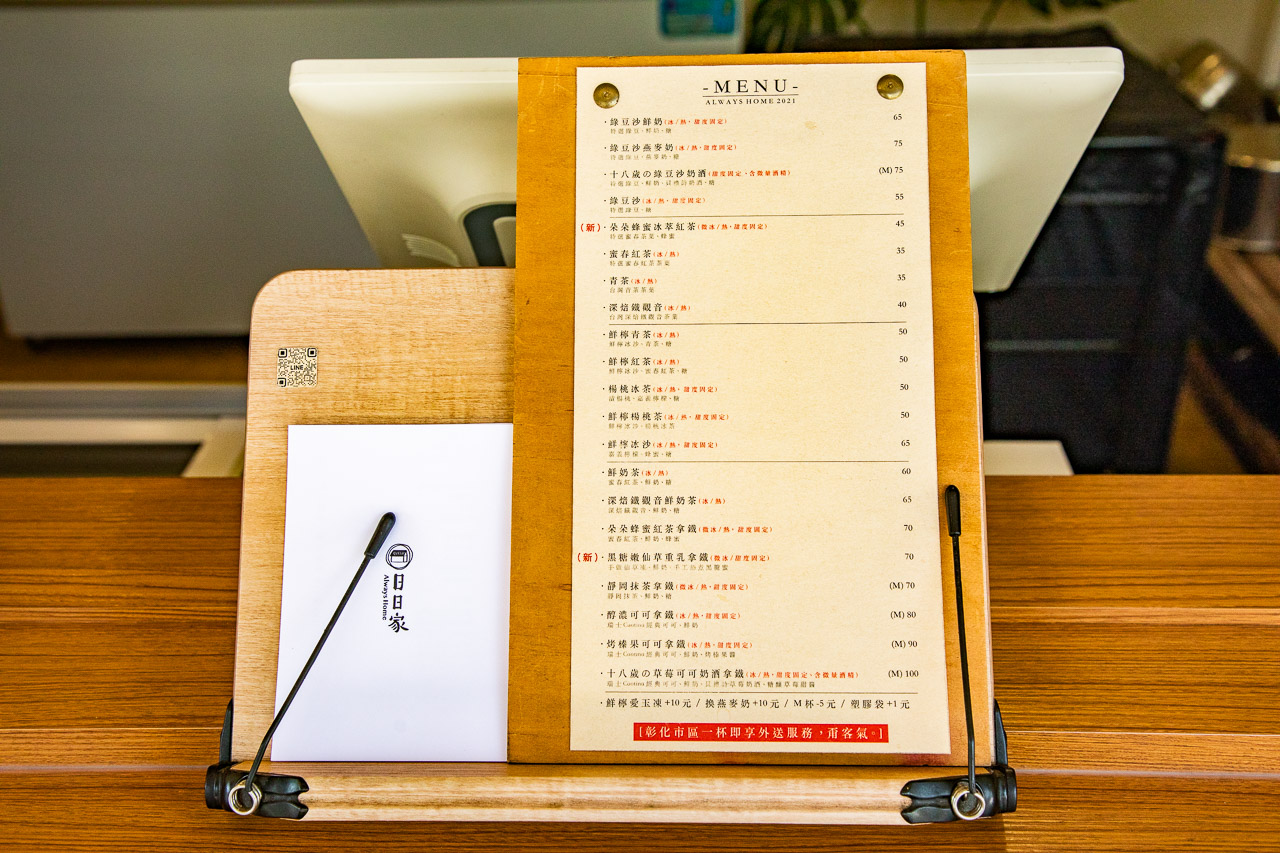 -MENU-
ALWAYS HOME 2021
·綠豆沙鮮奶(冰/熱,甜度固定) 65
特選綠豆、鮮奶、糖
·綠豆沙燕麥奶(冰/熱,甜度固定) 75
特選綠豆、燕麥奶、糖
·十八歲の綠豆沙奶酒(甜度固定、含微量酒精) (M) 75
特選綠豆、鮮奶、貝禮詩奶酒、糖
·綠豆沙(冰/熱,甜度固定) 55
特選綠豆、糖
(新)·朵朵蜂蜜冰萃紅茶(微冰/熱,甜度固定) 45
特選蜜香茶葉、蜂蜜
·蜜香紅茶(冰/熱) 35
特選蜜香紅茶茶葉
·青茶(冰/熱) 35
台灣青茶茶葉
·深焙鐵觀音(冰/熱) 40
台灣深焙鐵觀音茶葉
·鮮檸青茶(冰/熱) 50
鮮檸冰沙、青茶、糖
·鮮檸紅茶(冰/熱) 50
鮮檸冰沙、蜜香紅茶、糖
·楊桃冰茶(冰/熱,甜度固定) 50
·鮮檸楊桃茶(冰/熱,甜度固定) 50
鮮檸冰沙、楊桃冰茶
·鮮檸冰沙(冰/熱,甜度固定) 65
嘉義檸檬、蜂蜜、糖
·鮮奶茶(冰/熱) 60
蜜香紅茶、鮮奶、糖
·深焙鐵觀音鮮奶茶(冰/熱) 65
深焙鐵觀音、鮮奶、糖
·朵朵蜂蜜紅茶拿鐵(微冰/熱,甜度固定) 70
蜜香紅茶、鮮奶、蜂蜜
(新)·黑糖嫩仙草重乳拿鐵(微冰/甜度固定) 70
手做仙草凍、鮮奶、手工柴煮黑糖蜜
·靜岡抹茶拿鐵(微冰/熱,甜度固定) (M) 70
靜岡抹茶、鮮奶、糖
·醇濃可可拿鐵(冰/熱,甜度固定) (M) 80
瑞士Carma經典可可、鮮奶
·烤榛果可可拿鐵(冰/熱,甜度固定) (M) 90
瑞士Carma經典可可、鮮奶、烤榛果醬
·十八歲の草莓可可奶酒拿鐵(冰/熱,甜度固定、含微量酒精) (M) 100
瑞士Carma經典可可、鮮奶、貝禮詩草莓奶酒、糖釀草莓甜醬
·鮮檸愛玉凍+10元 / 換燕麥奶+10元 / M杯-5元 / 塑膠袋+1元
[彰化市區一杯即享外送服務,甭客氣。]
LINE
日日家
Always Home